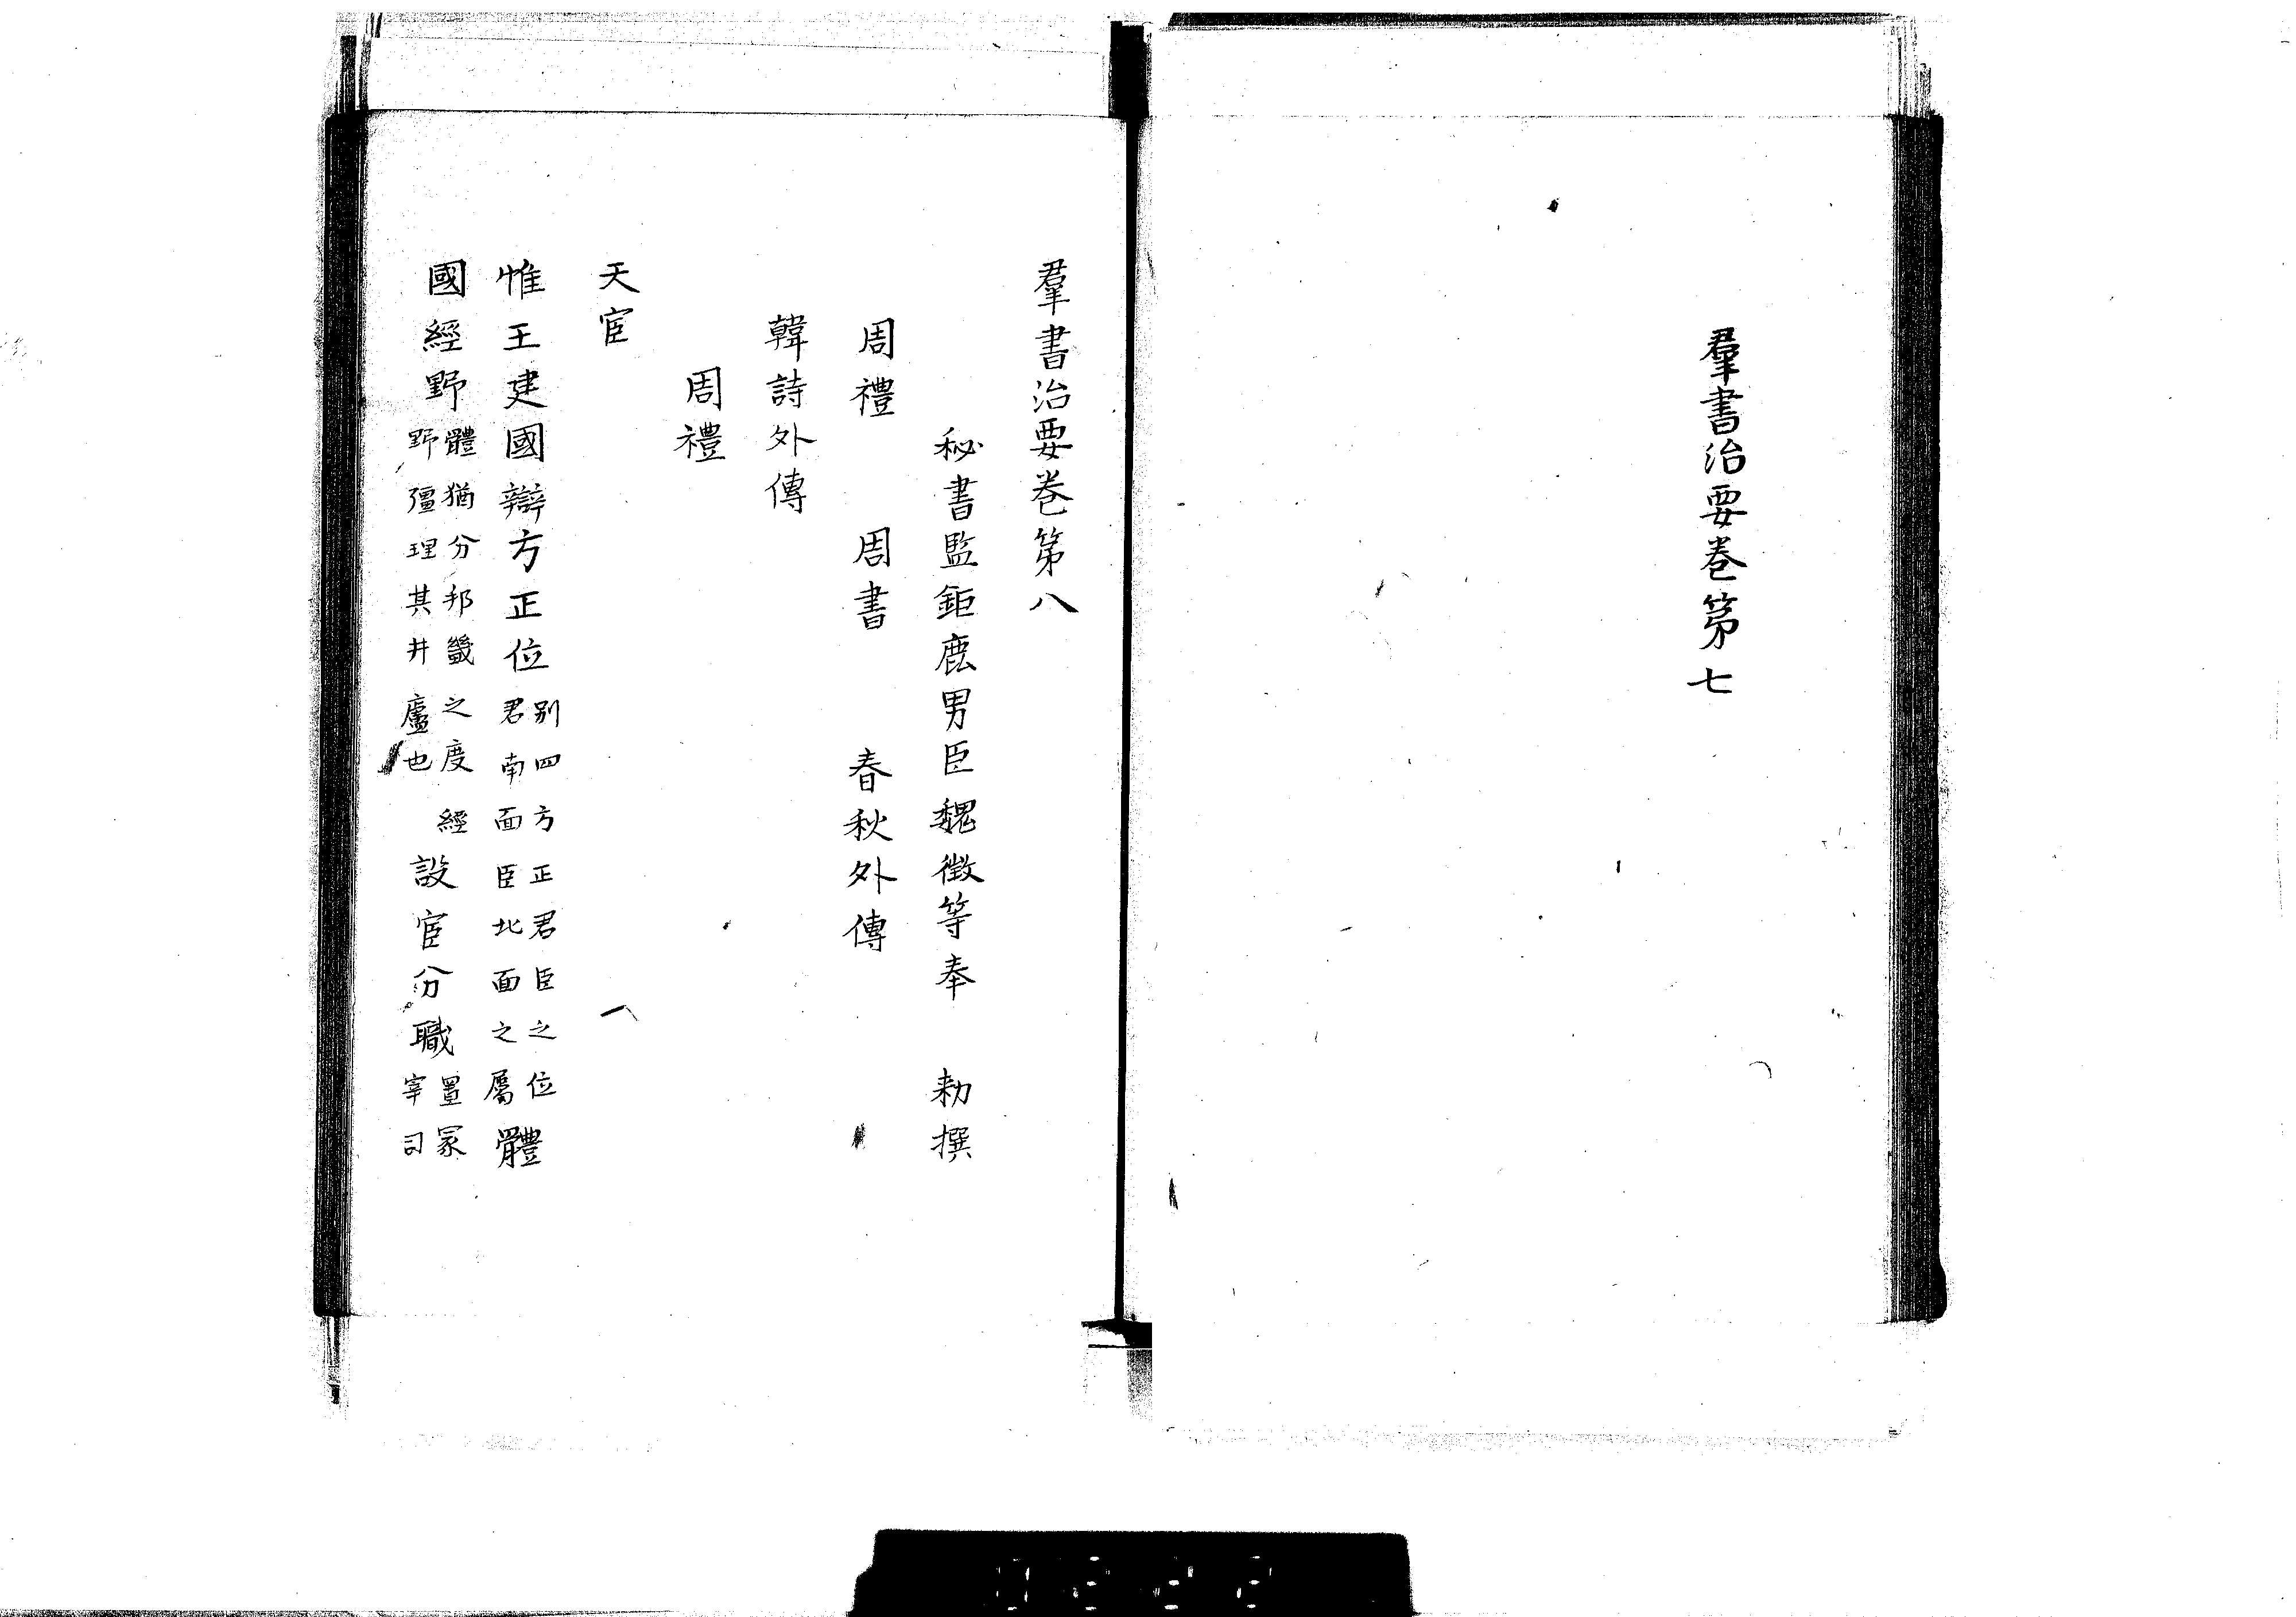 羣書治要卷第七
羣書治要卷第八
秘書監鉅鹿男臣魏徵等奉 勅撰
周禮 周書 春秋外傳
韓詩外傳
周禮
天官
惟王建國辯方正位別四方正君臣之位君南面臣北面之屬體
國經野體猶分邦畿之度經野彊理其井廬也設官分職置冢宰司